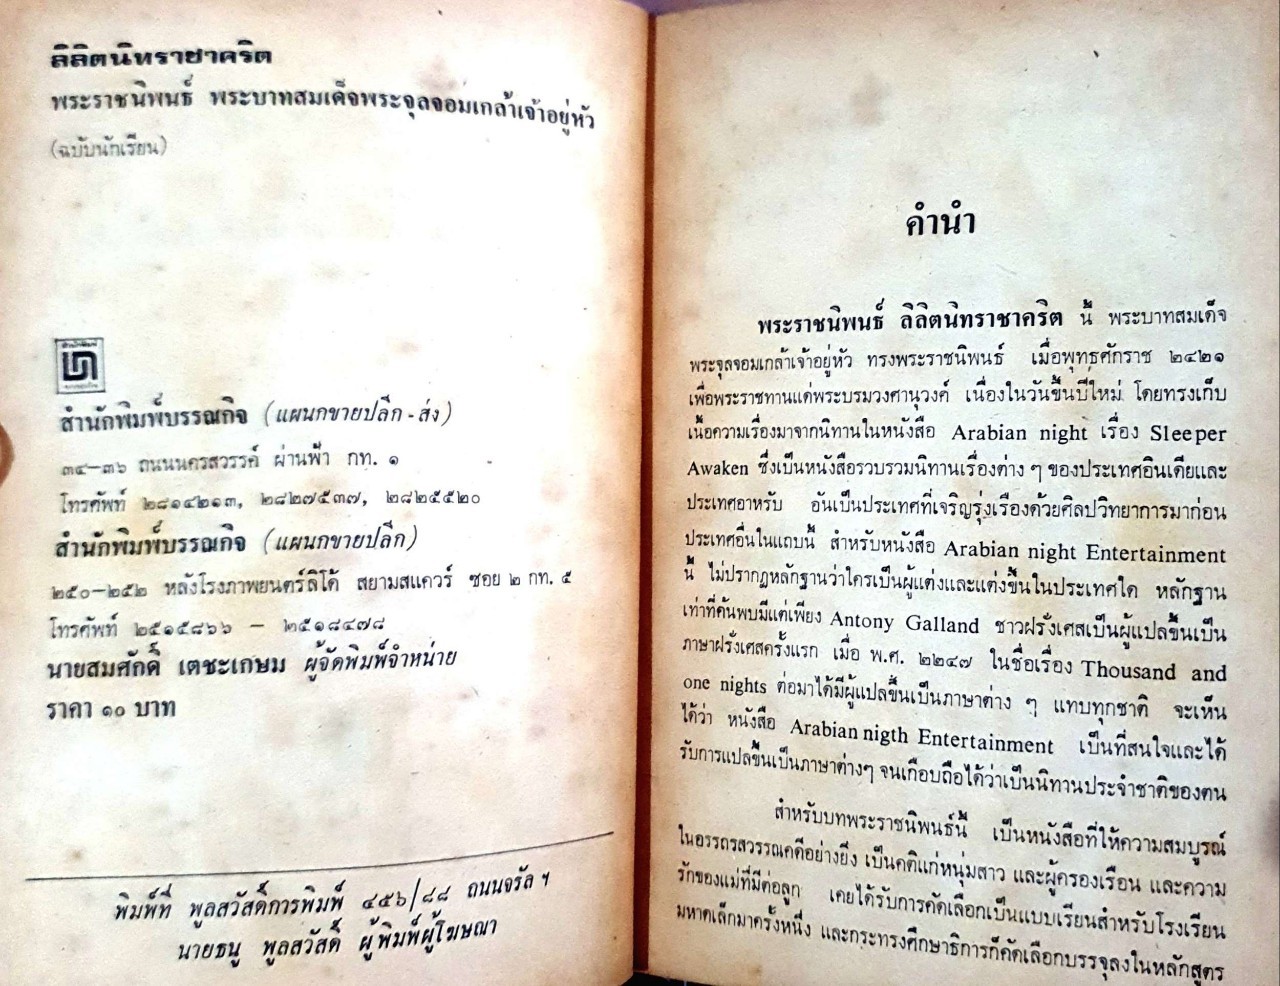 ลิลิตนิทราชาคริต
พระราชนิพนธ์ พระบาทสมเด็จพระจุลจอมเกล้าเจ้าอยู่หัว
(ฉบับนักเรียน)
สำนักพิมพ์บรรณกิจ (แผนกขายปลีก - ส่ง)
๓๔–๓๖ ถนนนครสวรรค์ ผ่านฟ้า กท. ๑
โทรศัพท์ ๒๘๑๔๒๑๓, ๒๘๒๗๕๓๗, ๒๘๒๕๕๒๐
สำนักพิมพ์บรรณกิจ (แผนกขายปลีก)
๒๕๐–๒๕๒ หลังโรงภาพยนตร์ลิโด้ สยามสแควร์ ซอย ๒ กท. ๕
โทรศัพท์ ๒๕๑๕๘๖๖ – ๒๕๑๘๔๗๘
นายสมศักดิ์ เตชะเกษม ผู้จัดพิมพ์จำหน่าย
ราคา ๑๐ บาท
พิมพ์ที่ พูลสวัสดิ์การพิมพ์ ๔๕๖/๘๘ ถนนจรัล ฯ
นายธนู พูลสวัสดิ์ ผู้พิมพ์ผู้โฆษณา
คำนำ
พระราชนิพนธ์ ลิลิตนิทราชาคริต นี้ พระบาทสมเด็จ
พระจุลจอมเกล้าเจ้าอยู่หัว ทรงพระราชนิพนธ์ เมื่อพุทธศักราช ๒๔๒๑
เพื่อพระราชทานแด่พระบรมวงศานุวงค์ เนื่องในวันขึ้นปีใหม่ โดยทรงเก็บ
เนื้อความเรื่องมาจากนิทานในหนังสือ Arabian night เรื่อง Sleeper
Awaken ซึ่งเป็นหนังสือรวบรวมนิทานเรื่องต่าง ๆ ของประเทศอินเดียและ
ประเทศอาหรับ อันเป็นประเทศที่เจริญรุ่งเรืองด้วยศิลปวิทยาการมาก่อน
ประเทศอื่นในแถบนี้ สำหรับหนังสือ Arabian night Entertainment
นี้ ไม่ปรากฏหลักฐานว่าใครเป็นผู้แต่งและแต่งขึ้นในประเทศใด หลักฐาน
เท่าที่ค้นพบมีแต่เพียง Antony Galland ชาวฝรั่งเศสเป็นผู้แปลขึ้นเป็น
ภาษาฝรั่งเศสครั้งแรก เมื่อ พ.ศ. ๒๒๔๗ ในชื่อเรื่อง Thousand and
one nights ต่อมาได้มีผู้แปลขึ้นเป็นภาษาต่าง ๆ แทบทุกชาติ จะเห็น
ได้ว่า หนังสือ Arabian nigth Entertainment เป็นที่สนใจและได้
รับการแปลขึ้นเป็นภาษาต่างๆ จนเกือบถือได้ว่าเป็นนิทานประจำชาติของตน
สำหรับบทพระราชนิพนธ์นี้ เป็นหนังสือที่ให้ความสมบูรณ์
ในอรรถรสวรรณคดีอย่างยิ่ง เป็นคติแก่หนุ่มสาว และผู้ครองเรือน และความ
รักของแม่ที่มีต่อลูก เคยได้รับการคัดเลือกเป็นแบบเรียนสำหรับโรงเรียน
มหาดเล็กมาครั้งหนึ่ง และกระทรวงศึกษาธิการก็คัดเลือกบรรจุลงในหลักสูตร